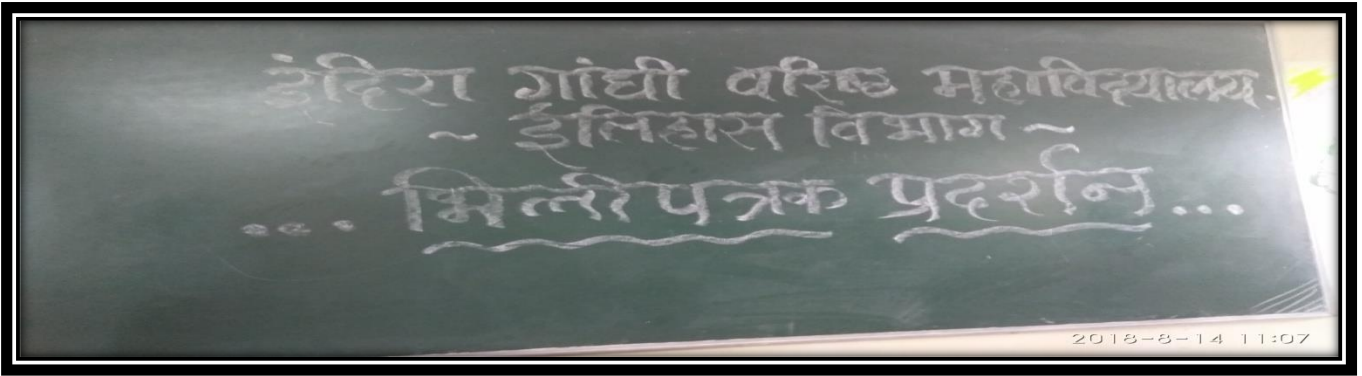 इंदिरा गांधी वरिष्ठ महाविद्यालय.
~ इतिहास विभाग ~
... भित्तीपत्रक प्रदर्शन...
2018-8-14 11:07